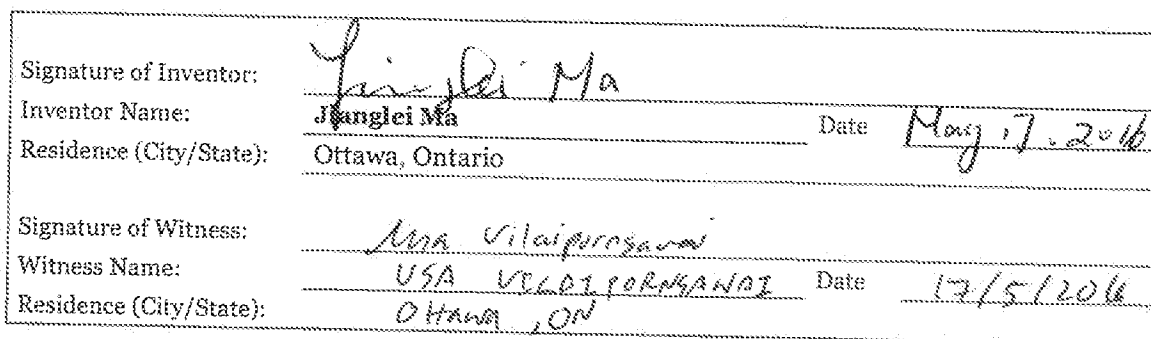 Signature of Inventor: Jianglei Ma
Inventor Name: Jianglei Ma Date May 17. 2016
Residence (City/State): Ottawa, Ontario
Signature of Witness: Usa Vilaipornsawai
Witness Name: USA VILAIPORNSAWAI Date 17/5/2016
Residence (City/State): Ottawa, ON